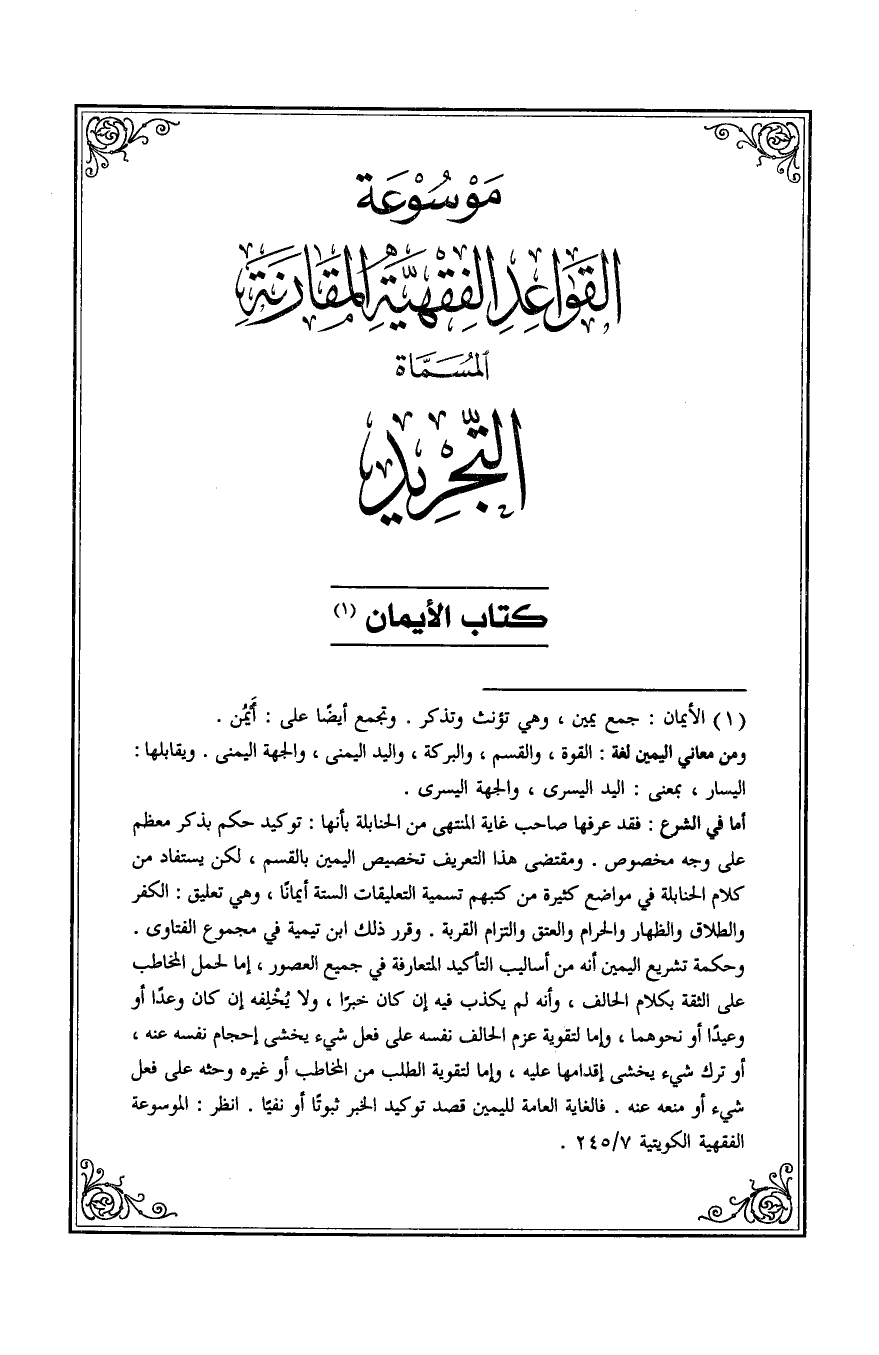 مَوْسُوْعَة
القَوَاعِدِ الفِقْهِيَّةِ المُقَارَنَةِ
المُسَمَّاة
التَّجْرِيد
كتاب الأيمان (١)
(١) الأيمان : جمع يمين ، وهي تؤنث وتذكر . وتجمع أيضًا على : أَيْمُن .
ومن معاني اليمين لغة : القوة ، والقسم ، والبركة ، واليد اليمنى ، والجهة اليمنى . ويقابلها :
اليسار ، بمعنى : اليد اليسرى ، والجهة اليسرى .
أما في الشرع : فقد عرفها صاحب غاية المنتهى من الحنابلة بأنها : توكيد حكم بذكر معظم
على وجه مخصوص . ومقتضى هذا التعريف تخصيص اليمين بالقسم ، لكن يستفاد من
كلام الحنابلة في مواضع كثيرة من كتبهم تسمية التعليقات الستة أيمانًا ، وهي تعليق : الكفر
والطلاق والظهار والحرام والعتق والتزام القربة . وقرر ذلك ابن تيمية في مجموع الفتاوى .
وحكمة تشريع اليمين أنه من أساليب التأكيد المتعارفة في جميع العصور ، إما لحمل المخاطب
على الثقة بكلام الحالف ، وأنه لم يكذب فيه إن كان خبرًا ، ولا يُخْلِفه إن كان وعدًا أو
وعيدًا أو نحوهما ، وإما لتقوية عزم الحالف نفسه على فعل شيء يخشى إحجام نفسه عنه ،
أو ترك شيء يخشى إقدامها عليه ، وإما لتقوية الطلب من المخاطب أو غيره وحثه على فعل
شيء أو منعه عنه . فالغاية العامة لليمين قصد توكيد الخبر ثبوتًا أو نفيًا . انظر : الموسوعة
الفقهية الكويتية ٢٤٥/٧ .